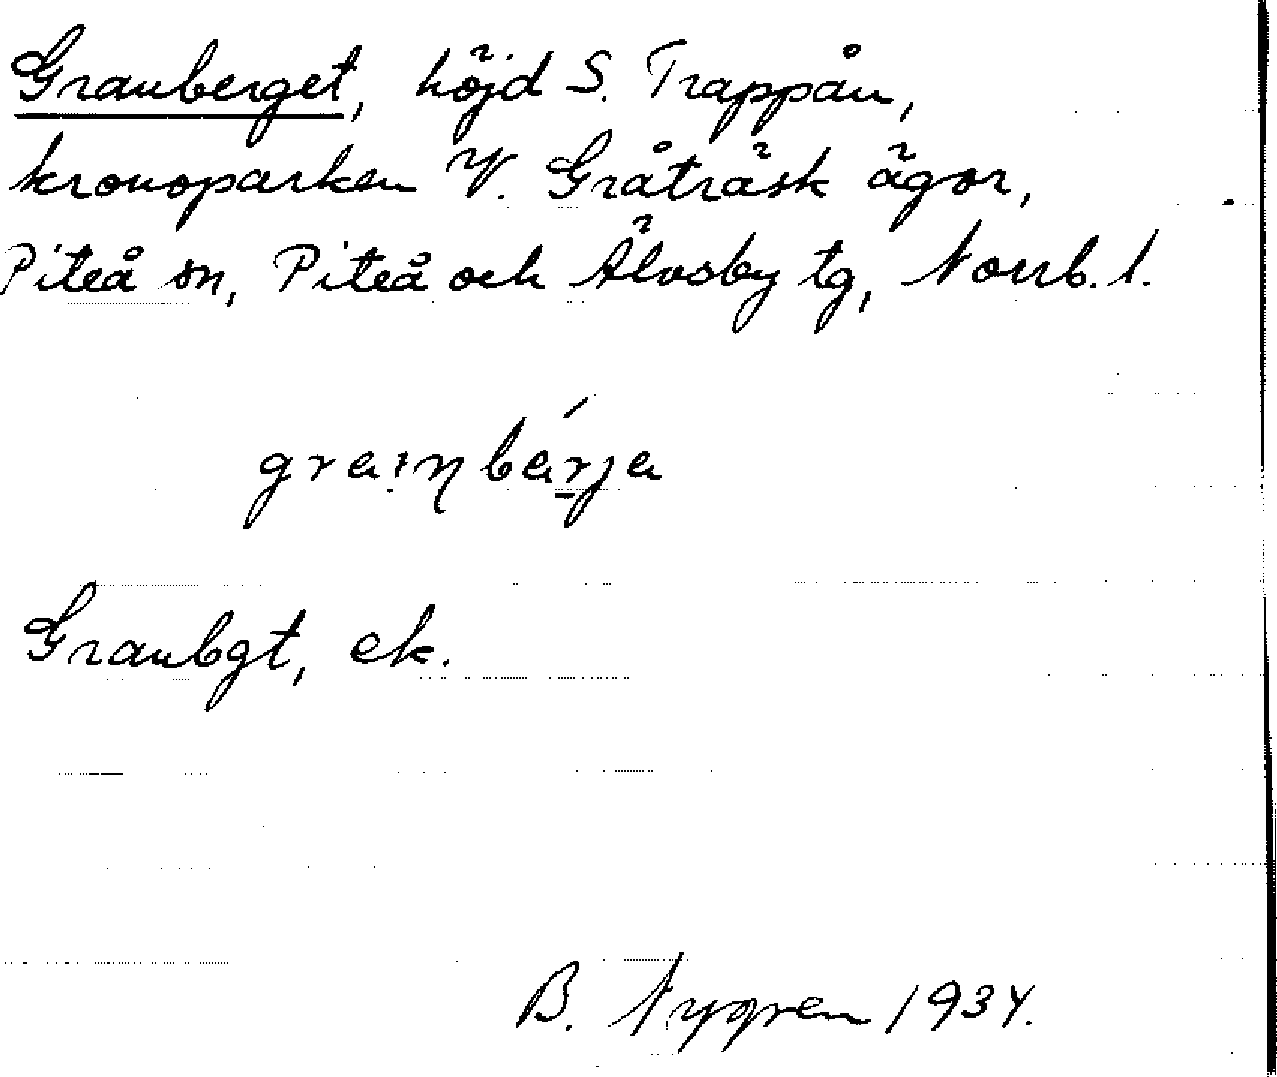 Granberget, höjd S. Trappån,
kronoparken V. Gråträsk ägor,
Piteå sn, Piteå och Älvsby tg, Norrb. l.
Granbgt, ek.
B. Nygren 1934.